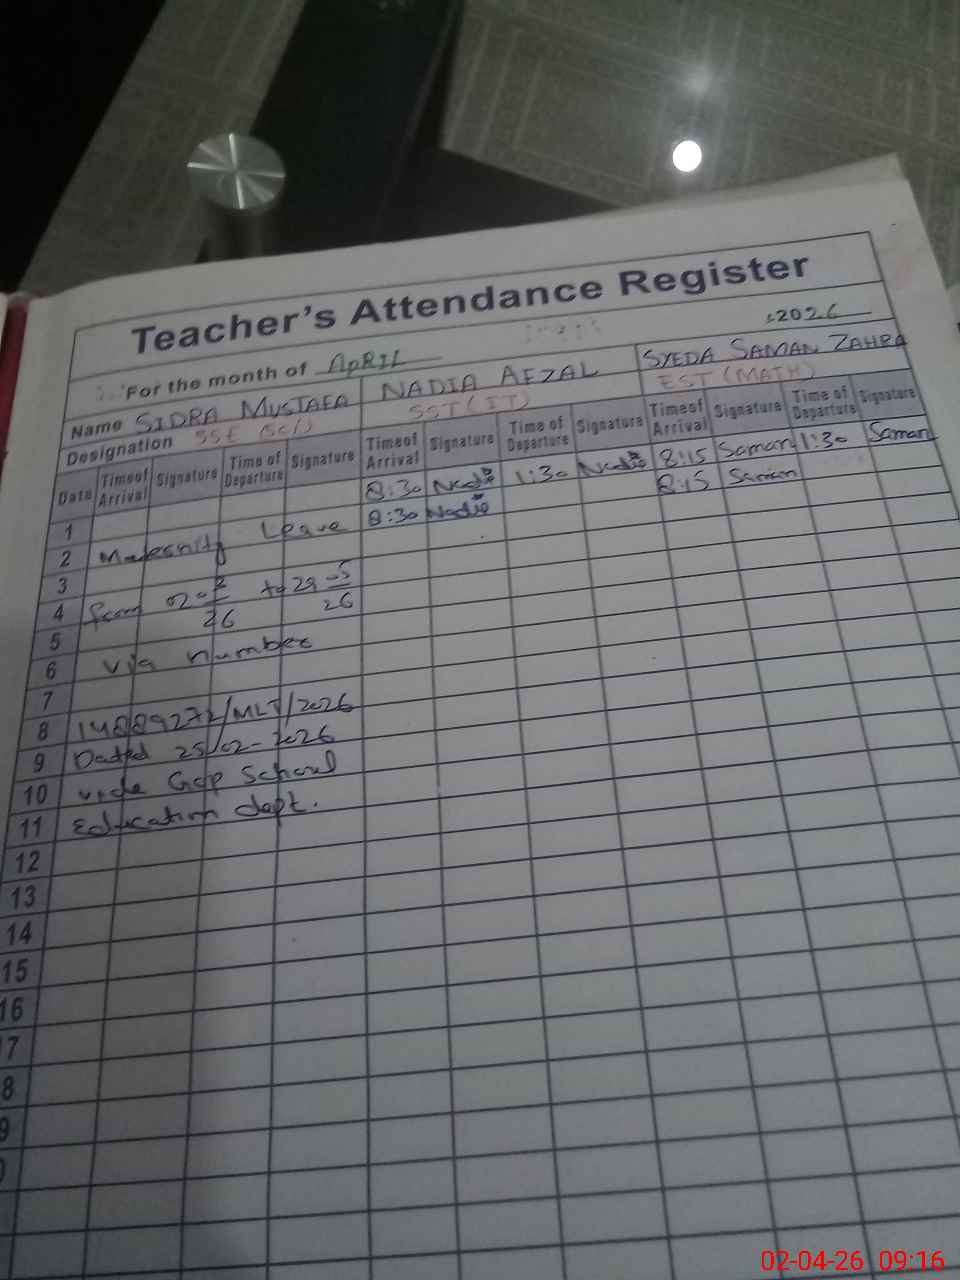 Teacher's Attendance Register
For the month of APRIL 2026
Name SIDRA MUSTAFA NADIA AFZAL SYEDA SAMAN ZAHRA
Designation SSE (Sci) SST (IT) EST (MATH)
Date Time of Arrival Signature Time of Departure Signature Time of Arrival Signature Time of Departure Signature Time of Arrival Signature Time of Departure Signature
1 8:30 Nadia 1:30 Nadia 8:15 Saman 1:30 Saman
2 Maternity Leave 8:30 Nadia 8:15 Saman
3
4 from 02-2/26 to 29-5/26
5
6 via number
7
8 14889272/MLT/2026
9 Dated 25/02-2026
10 vide GOP School
11 Education dept.
12
13
14
15
16
7
8
9
02-04-26 09:16